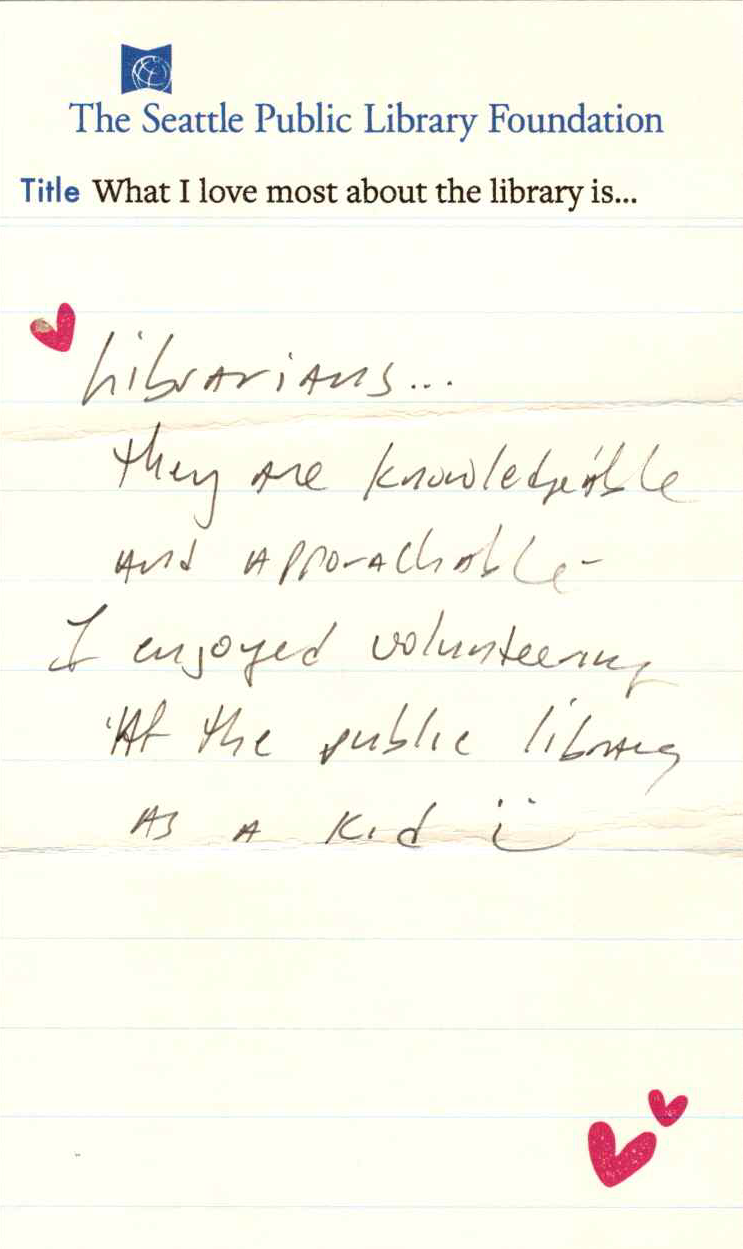 The Seattle Public Library Foundation
Title What I love most about the library is...
Librarians...
they are knowledgeable
and approachable-
I enjoyed volunteering
At the public library
As a kid